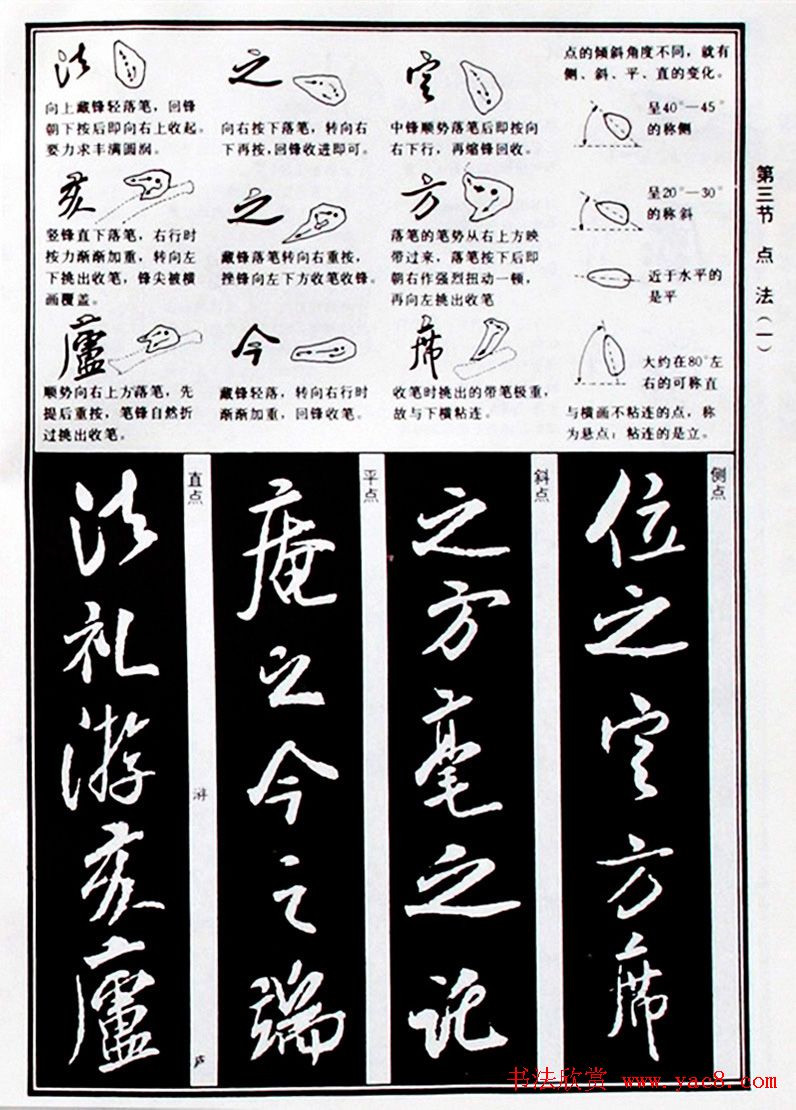 第三节 点 法（一）
法
向上藏锋轻落笔，回锋
朝下按后即向右上收起。
要力求丰满圆润。
之
向右按下落笔，转向右
下再按，回锋收进即可。
定
中锋顺势落笔后即按向
右下行，再缩锋回收。
点的倾斜角度不同，就有
侧、斜、平、直的变化。
呈40°—45°
的称侧
亥
竖锋直下落笔，右行时
按力渐渐加重，转向左
下挑出收笔，锋尖被横
画覆盖。
之
藏锋落笔转向右重按，
挫锋向左下方收笔收锋。
方
落笔的笔势从右上方映
带过来，落笔按下后即
朝右作强烈扭动一顿，
再向左挑出收笔
呈20°—30°
的称斜
近于水平的
是平
廬
顺势向右上方落笔，先
提后重按，笔锋自然折
过挑出收笔。
今
藏锋轻落，转向右行时
渐渐加重，回锋收笔。
席
收笔时挑出的带笔极重，
故与下横粘连。
大约在80°左
右的可称直
与横画不粘连的点，称
为悬点；粘连的是立。
侧点
位之定方席
斜点
之方毫之託
平点
庵之今之端
直点
法礼游亥廬
游
庐
书法欣赏 www.yac8.com